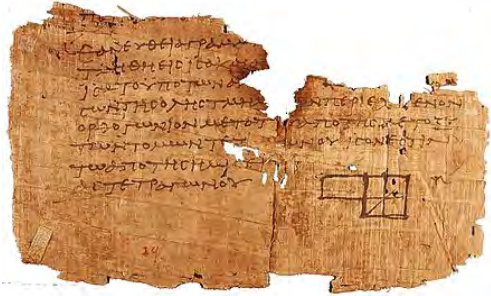 ΕΑΝ ΕΥΘΕΙΑ ΓΡΑΜ
ΤΜΗΘΗ ΕΙϹ ΙϹΑ ΚΑΙ
ΙϹΑ ΤΟ ΥΠΟ ΤΩΝ
ϹΩΝ ΤΗϹ ΟΛΗϹ ΤΜΗ ΩΝ ΠΕΡΙΕΧΟΜΕΝΟΝ
ΟΡΘΟΓΩΝΙΟΝ ΜΕΤΑ ΤΟΥ ΑΠΟ ΤΗϹ ΜΕΤΟΞΥ
ΤΩΝ ΤΟΜΩΝ ΤΕΤ ΩΝΟΥ ΙϹΟΝ ΕϹΤΙΝ
ΤΩ ΑΠΟ ΤΗϹ ΗΜΙ
ΤΕΤΡΑΓΩΝΟΥ